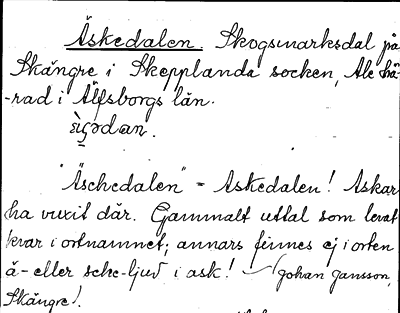 Äskedalen. Skogsmarksdal på
Skängre i Skepplanda socken, Ale hä-
-rad i Älfsborgs län.
"Äschedalen" = Askedalen! Askar
ha vuxit där. Gammalt uttal som levat
kvar i ortnamnet, annars finnes ej i orten
ä- eller sche-ljud i ask! (Johan Jansson,
Skängre).